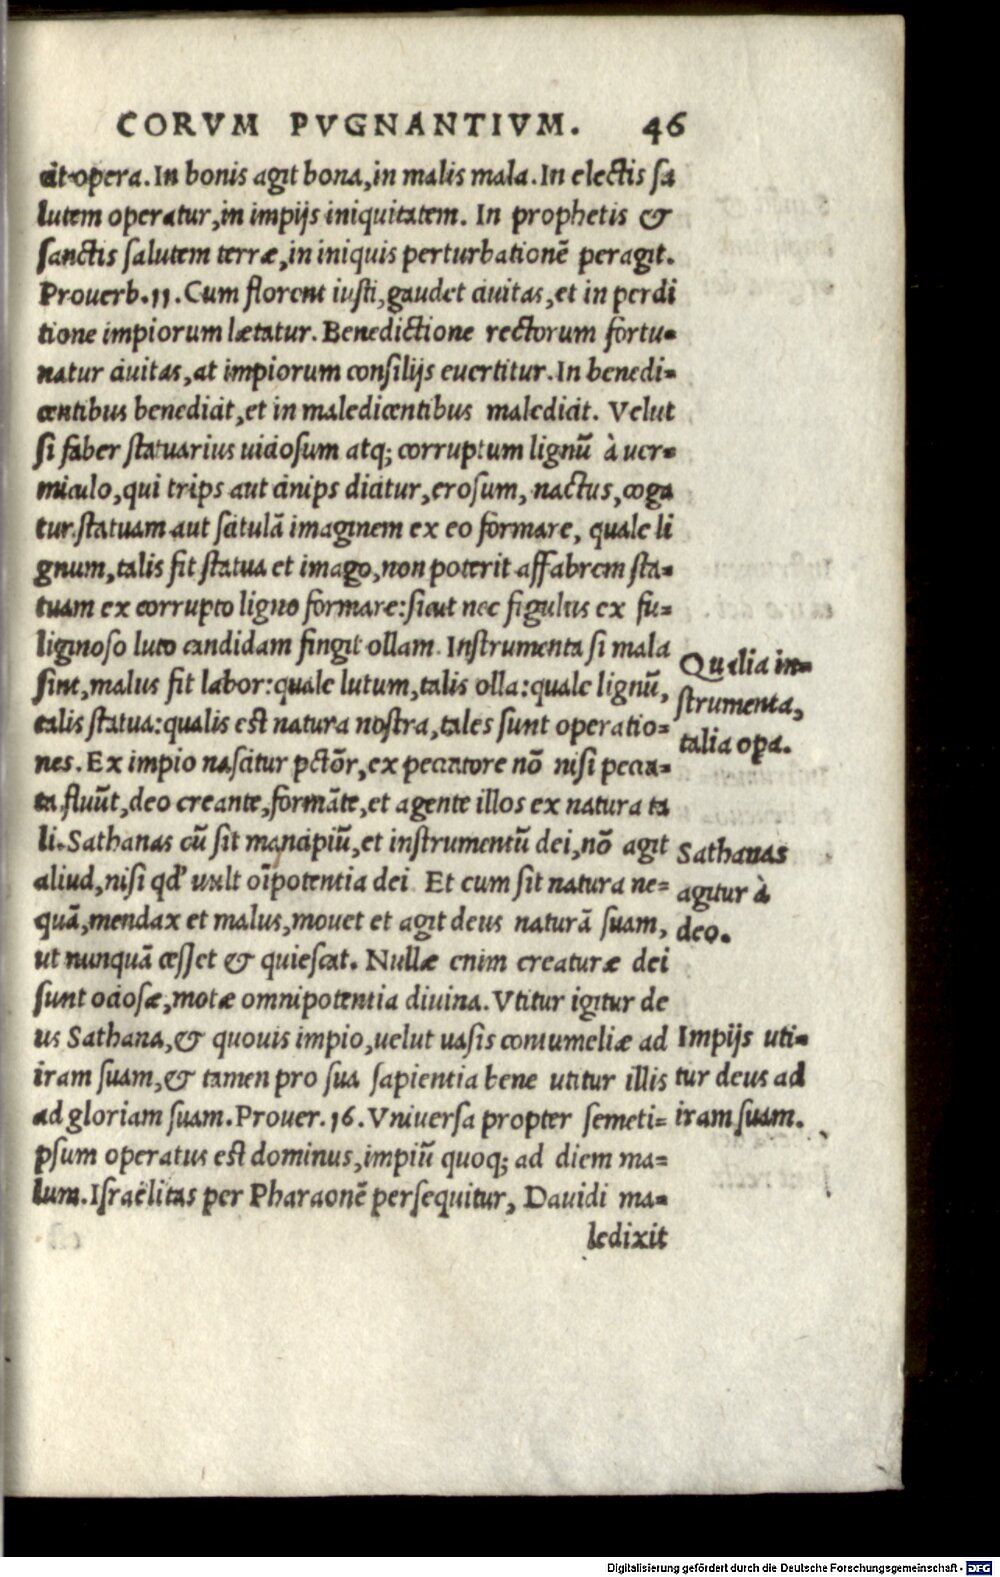 CORVM PVGNANTIVM. 46
cit opera. In bonis agit bona, in malis mala. In electis sa
lutem operatur, in impijs iniquitatem. In prophetis &
sanctis salutem terræ, in iniquis perturbationē peragit.
Prouerb. 11. Cum florent iusti, gaudet ciuitas, et in perdi
tione impiorum lætatur. Benedictione rectorum fortu-
natur ciuitas, at impiorum consilijs euertitur. In benedi-
centibus benedicit, et in maledicentibus maledicit. Velut
si faber statuarius uiciosum atq; corruptum lignū à uer-
miculo, qui trips aut cinips dicitur, erosum, nactus, coga
tur statuam aut scitulā imaginem ex eo formare, quale li
gnum, talis fit statua et imago, non poterit affabrem sta-
tuam ex corrupto ligno formare: sicut nec figulus ex fu-
liginoso luto candidam fingit ollam. Instrumenta si mala
sint, malus fit labor: quale lutum, talis olla: quale lignū,
talis statua: qualis est natura nostra, tales sunt operatio-
nes. Ex impio nascitur pctōr, ex peccatore nō nisi pecca-
ta fluūt, deo creante, formāte, et agente illos ex natura ta
li. Sathanas cū sit mancipiū, et instrumentū dei, nō agit
aliud, nisi qd' uult oīpotentia dei Et cum sit natura ne-
quā, mendax et malus, mouet et agit deus naturā suam,
ut nunquā cesset & quiescat. Nullæ enim creaturæ dei
sunt ociosæ, motæ omnipotentia diuina. Vtitur igitur de
us Sathana, & quouis impio, uelut uasis contumeliæ ad
iram suam, & tamen pro sua sapientia bene utitur illis
ad gloriam suam. Prouer. 16. Vniuersa propter semeti-
psum operatus est dominus, impiū quoq; ad diem ma-
lum. Israëlitas per Pharaonē persequitur, Dauidi ma-
ledixit
Qualia in-
strumenta,
talia opa.
Sathanas
agitur à
deo.
Impijs uti-
tur deus ad
iram suam.
Digitalisierung gefördert durch die Deutsche Forschungsgemeinschaft - DFG